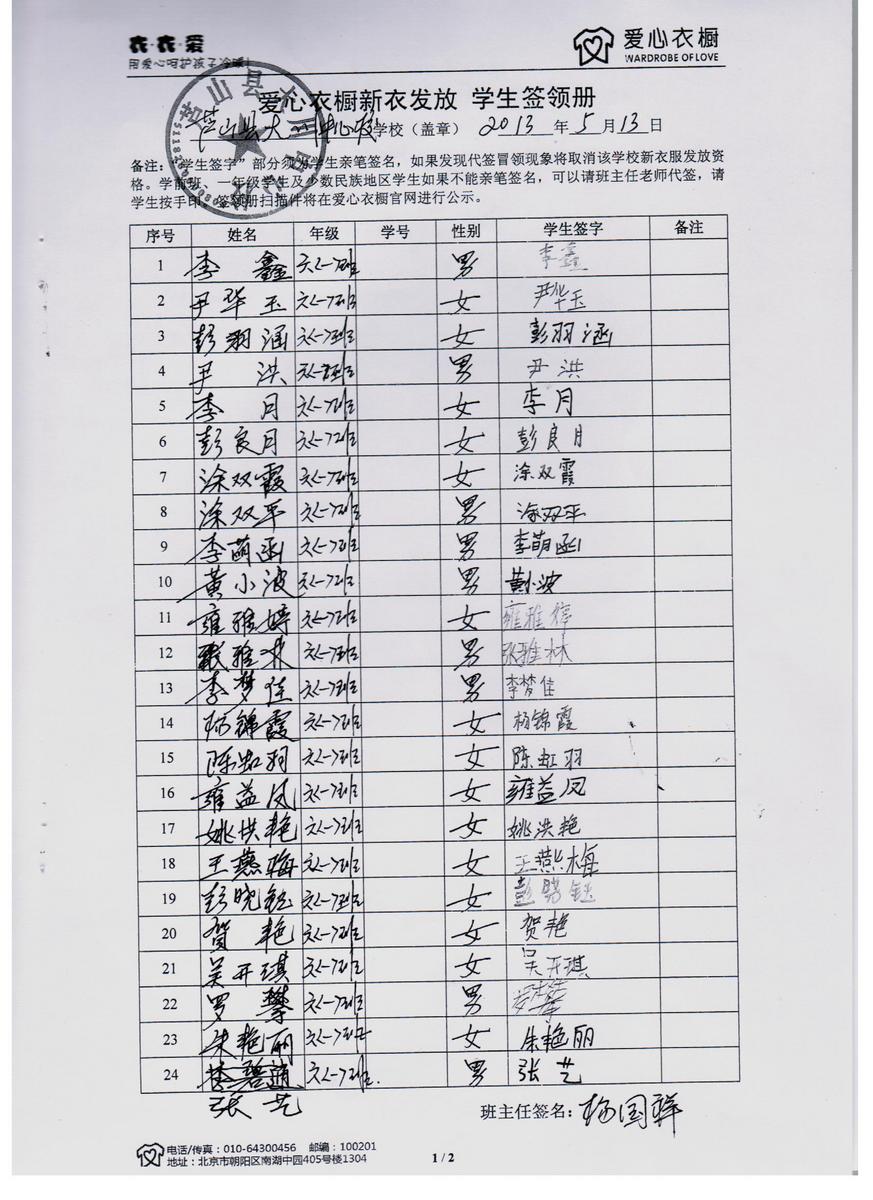 衣·衣·爱
用爱心呵护孩子冷暖!
爱心衣橱
WARDROBE OF LOVE
爱心衣橱新衣发放 学生签领册
芦山县大川中心校学校（盖章） 2013 年 5 月 13 日
备注："学生签字"部分须为学生亲笔签名，如果发现代签冒领现象将取消该学校新衣服发放资
格。学前班、一年级学生及少数民族地区学生如果不能亲笔签名，可以请班主任老师代签，请
学生按手印。签领册扫描件将在爱心衣橱官网进行公示。
序号 姓名 年级 学号 性别 学生签字 备注
1 李鑫 六<一>班 男 李鑫
2 尹华玉 六<一>班 女 尹华玉
3 彭羽涵 六<一>班 女 彭羽涵
4 尹洪 六<一>班 男 尹洪
5 李月 六<一>班 女 李月
6 彭良月 六<一>班 女 彭良月
7 涂双霞 六<一>班 女 涂双霞
8 涂双平 六<一>班 男 涂双平
9 李萌函 六<一>班 男 李萌函
10 黄小波 六<一>班 男 黄小波
11 雍雅婷 六<一>班 女 雍雅婷
12 张雅林 六<一>班 男 张雅林
13 李梦佳 六<一>班 男 李梦佳
14 杨锦霞 六<一>班 女 杨锦霞
15 陈虹羽 六<一>班 女 陈虹羽
16 雍益凤 六<一>班 女 雍益凤
17 姚洪艳 六<一>班 女 姚洪艳
18 王燕梅 六<一>班 女 王燕梅
19 彭晓钰 六<一>班 女 彭晓钰
20 贺艳 六<一>班 女 贺艳
21 吴开琪 六<一>班 女 吴开琪
22 罗攀 六<一>班 男 罗攀
23 朱艳丽 六<一>班 女 朱艳丽
24 六<一>班. 男 张艺
张艺
班主任签名: 杨国祥
电话/传真：010-64300456 邮编：100201
地址：北京市朝阳区南湖中园405号楼1304
1 / 2